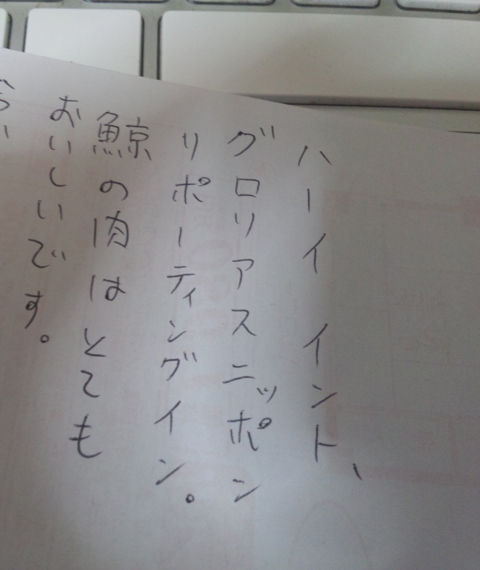 ハーイ イント、
グロリアスニッポン
リポーティングイン。
鯨の肉はとても
おいしいです。